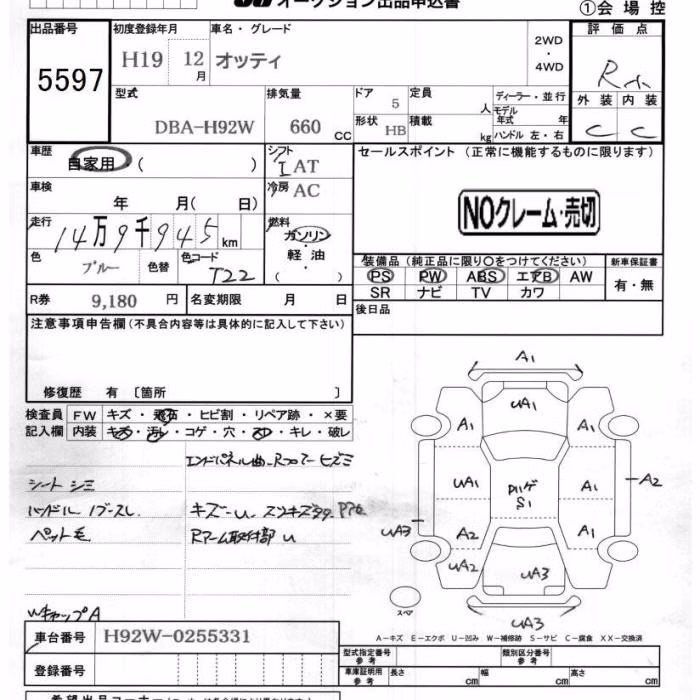 オークション出品申込書
①会場控
出品番号 初度登録年月 車名・グレード 評価点
5597 H19 12月 オッティ 2WD・4WD R小
型式 排気量 ドア 5 定員 人 ディーラー・並行 外装 内装
モデル年式 年
DBA-H92W 660 CC 形状 HB 積載 kg ハンドル 左・右 C C
車歴 自家用 ( ) シフト I AT セールスポイント (正常に機能するものに限ります)
車検 年 月( 日) 冷房 AC
NOクレーム・売切
走行 14万9千945km 燃料 ガソリン・軽油・( )
色 ブルー 色替 色コード T22
装備品(純正品に限り○をつけてください) 新車保証書
PS PW ABS エアB AW 有・無
SR ナビ TV カワ
R券 9,180 円 名変期限 月 日 後日品
注意事項申告欄(不具合内容等は具体的に記入して下さい)
修復歴 有 〔箇所 〕
検査員 FW キズ・飛石・ヒビ割・リペア跡・×要
記入欄 内装 キズ・汚レ・コゲ・穴・スレ・キレ・破レ
シートシミ
ペット毛
キズ~U
R 取付部 U
WキャップA
A1
UA1
A1 A1
UA1 S1 A1 A2
UA3 A2 A1
UA2 UA3
スペア
UA3
A-キズ E-エクボ U-凹み W-補修跡 S-サビ C-腐食 XX-交換済
車台番号 H92W-0255331
型式指定番号 参考 類別区分番号 参考
登録番号 車庫証明用参考 長さ cm 幅 cm 高さ cm
希望出品コーナー